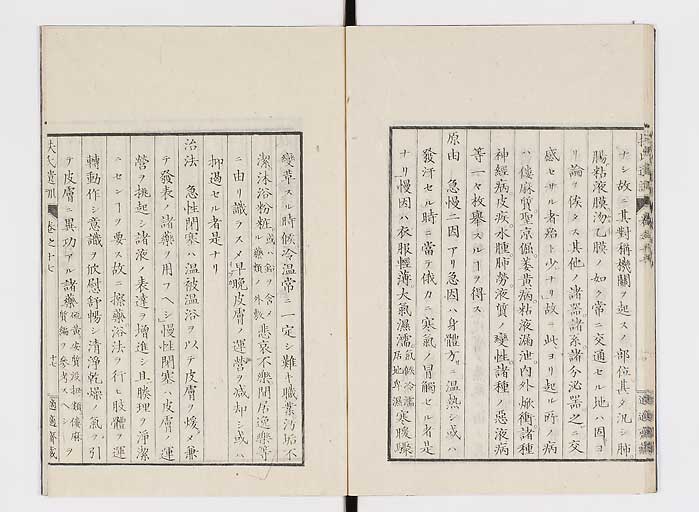 ナシ故ニ其對稱機關ヲ起スノ部位甚タ汎シ肺
腸粘液膜汤乙膜ノ如ク常ニ交通セル地ノ因ヨ
リ論ヲ俟タス其他ノ諸器諸系諸分泌器之ニ交
感セサル者殆ト少ナリ故ニ此ヨリ起ル所ノ病
ハ僂麻質聖京倔萎黄病粘液漏泄内外焮衝諸種
神經病皮疾水腫肺勞液質ノ變性諸種ノ惡液病
等一々枚擧スルヿヲ得ス
原由 急慢二因アリ急因ハ身體方ニ温熱シ或ハ
發汗セル時ニ當テ俄カニ寒氣ノ冒觸セル者是
ナリ慢因ハ衣服輕薄大氣濕濡氣候冷濡居地卑濕寒暖驟
變革スル時候冷温常ニ一定シ難キ職業汚垢不
潔沐浴粉粧或ハ鉛ヲ含メル藥類ノ外敷悲哀不樂閒居逸樂等
ニ由リ識ラスメ早晩皮膚ノ運營ヲ減却シ或ハ
抑遏セル者是ナリ
治法 急性閉塞ハ温被温浴ヲ以テ皮膚ヲ煖メ兼
テ發表ノ諸藥ヲ用フヘシ慢性閉塞ハ皮膚ノ運
營ヲ挑起シ諸液ノ表達ヲ增進シ且腠理ヲ淨潔
ニセンヿヲ要ス故ニ擦藥浴法ヲ行ヒ肢體ヲ運
轉動作シ意識ヲ欣慰舒暢シ清淨乾燥ノ氣ヲ引
テ皮膚ニ異功アル諸藥硫黄安質没扭類僂麻質編ヲ參考スヘシヲ
扶氏遺訓 卷之十七 十七 適適齋藏